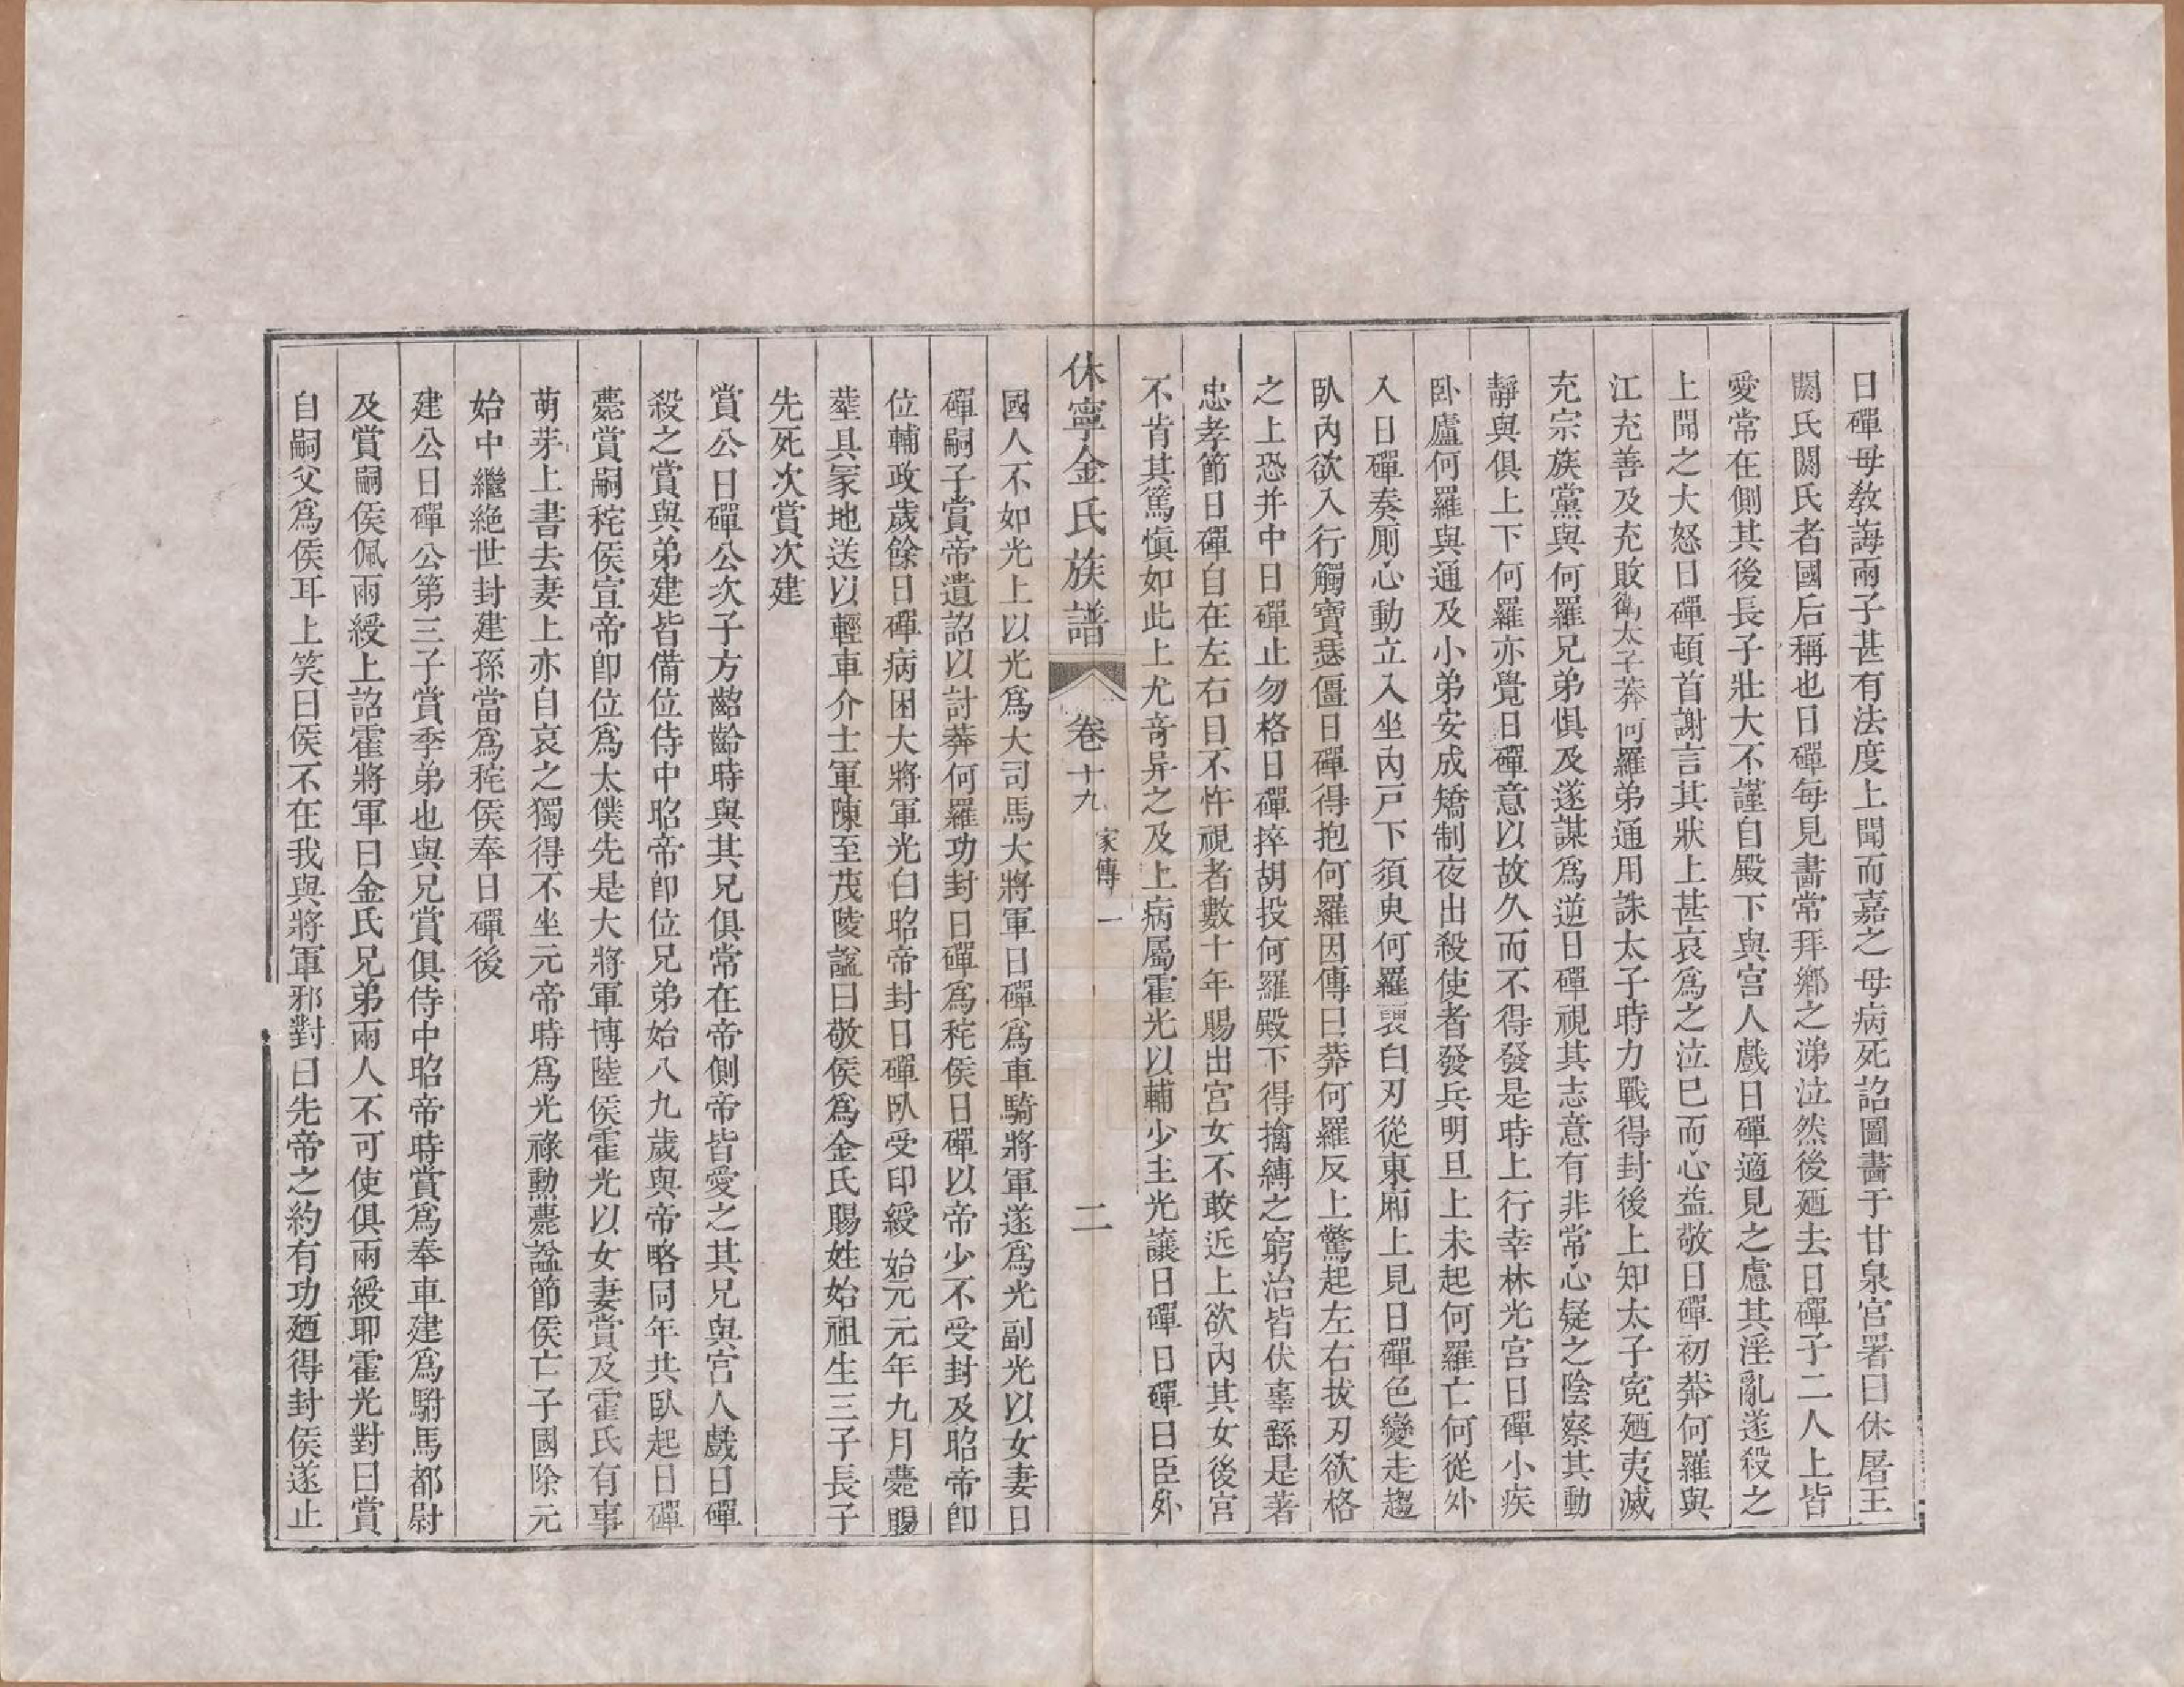 日磾母教誨兩子甚有法度上聞而嘉之母病死詔圖畵于甘泉宮署曰休屠王
閼氏閼氏者國后稱也日磾每見畵常拜鄉之涕泣然後廼去日磾子二人上皆
愛常在側其後長子壯大不謹自殿下與宮人戲日磾適見之慮其淫亂遂殺之
上聞之大怒日磾頓首謝言其狀上甚哀爲之泣已而心益敬日磾初莽何羅與
江充善及充敗衛太子莽何羅弟通用誅太子時力戰得封後上知太子寃廼夷滅
充宗族黨與何羅兄弟惧及遂謀爲逆日磾視其志意有非常心疑之陰察其動
靜與俱上下何羅亦覺日磾意以故久而不得發是時上行幸林光宮日磾小疾
卧廬何羅與通及小弟安成矯制夜出殺使者發兵明旦上未起何羅亡何從外
入日磾奏厠心動立入坐内戸下須臾何羅褏白刃從東廂上見日磾色變走趨
臥内欲入行觸寶瑟僵日磾得抱何羅因傳曰莽何羅反上驚起左右拔刃欲格
之上恐并中日磾止勿格日磾捽胡投何羅殿下得擒縛之窮治皆伏辜繇是著
忠孝節日磾自在左右目不忤視者數十年賜出宮女不敢近上欲内其女後宮
不肯其篤愼如此上尤竒异之及上病屬霍光以輔少主光讓日磾日磾曰臣外
休寧金氏族譜 卷十九 家傳一 二
國人不如光上以光爲大司馬大將軍日磾爲車騎將軍遂爲光副光以女妻日
磾嗣子賞帝遺詔以討莽何羅功封日磾爲秺侯日磾以帝少不受封及昭帝卽
位輔政歲餘日磾病困大將軍光白昭帝封日磾臥受印綬始元元年九月薨賜
塟具冢地送以輕車介士軍陳至茂陵諡曰敬侯爲金氏賜姓始祖生三子長子
先死次賞次建
賞公日磾公次子方齠齡時與其兄俱常在帝側帝皆愛之其兄與宮人戲日磾
殺之賞與弟建皆備位侍中昭帝卽位兄弟始八九歲與帝略同年共臥起日磾
薨賞嗣秺侯宣帝卽位爲太僕先是大將軍博陸侯霍光以女妻賞及霍氏有事
萌芽上書去妻上亦自哀之獨得不坐元帝時爲光祿勳薨諡節侯亡子國除元
始中繼絶世封建孫當爲秺侯奉日磾後
建公日磾公第三子賞季弟也與兄賞俱侍中昭帝時賞爲奉車建爲駙馬都尉
及賞嗣侯佩兩綬上詔霍將軍曰金氏兄弟兩人不可使俱兩綬耶霍光對曰賞
自嗣父爲侯耳上笑曰侯不在我與將軍邪對曰先帝之約有功廼得封侯遂止